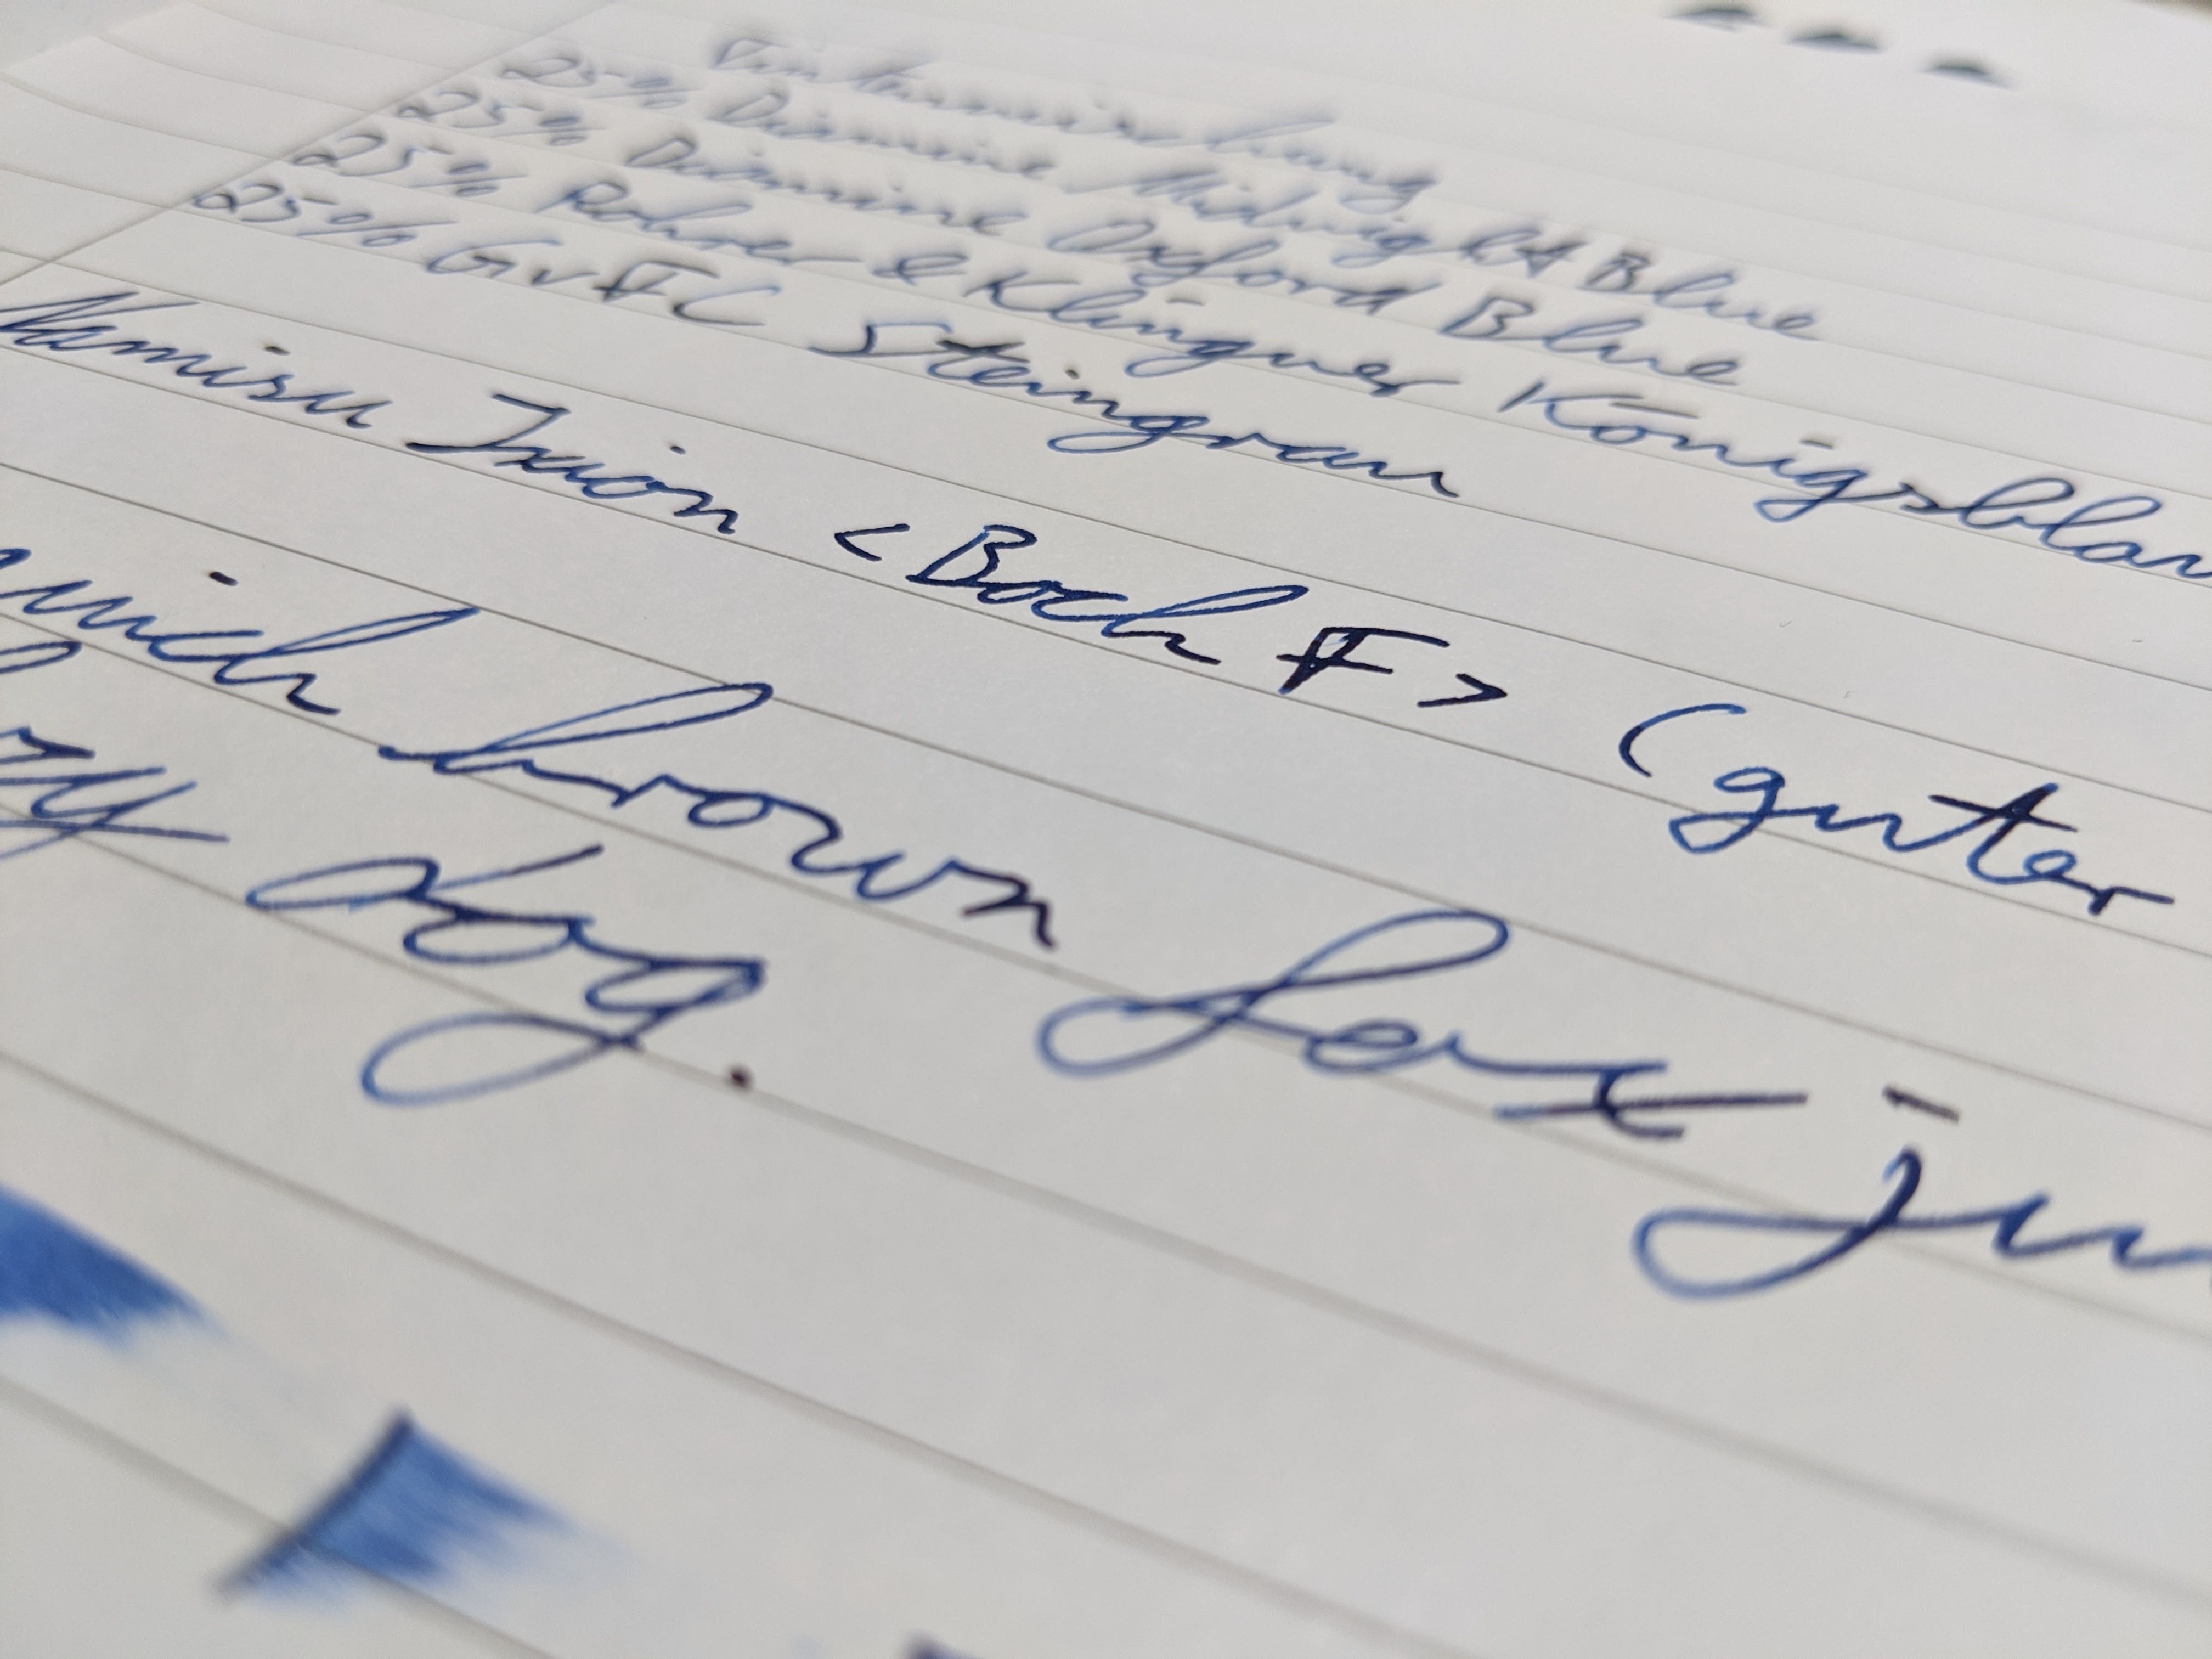 Tintenmischung
25% Diamine Midnight Blue
25% Diamine Oxford Blue
25% Rohrer & Klingner Königsblau
25% GvFC Steingrau
Namisu Ixion <Bock F> (guter
brown fox ju
dog.